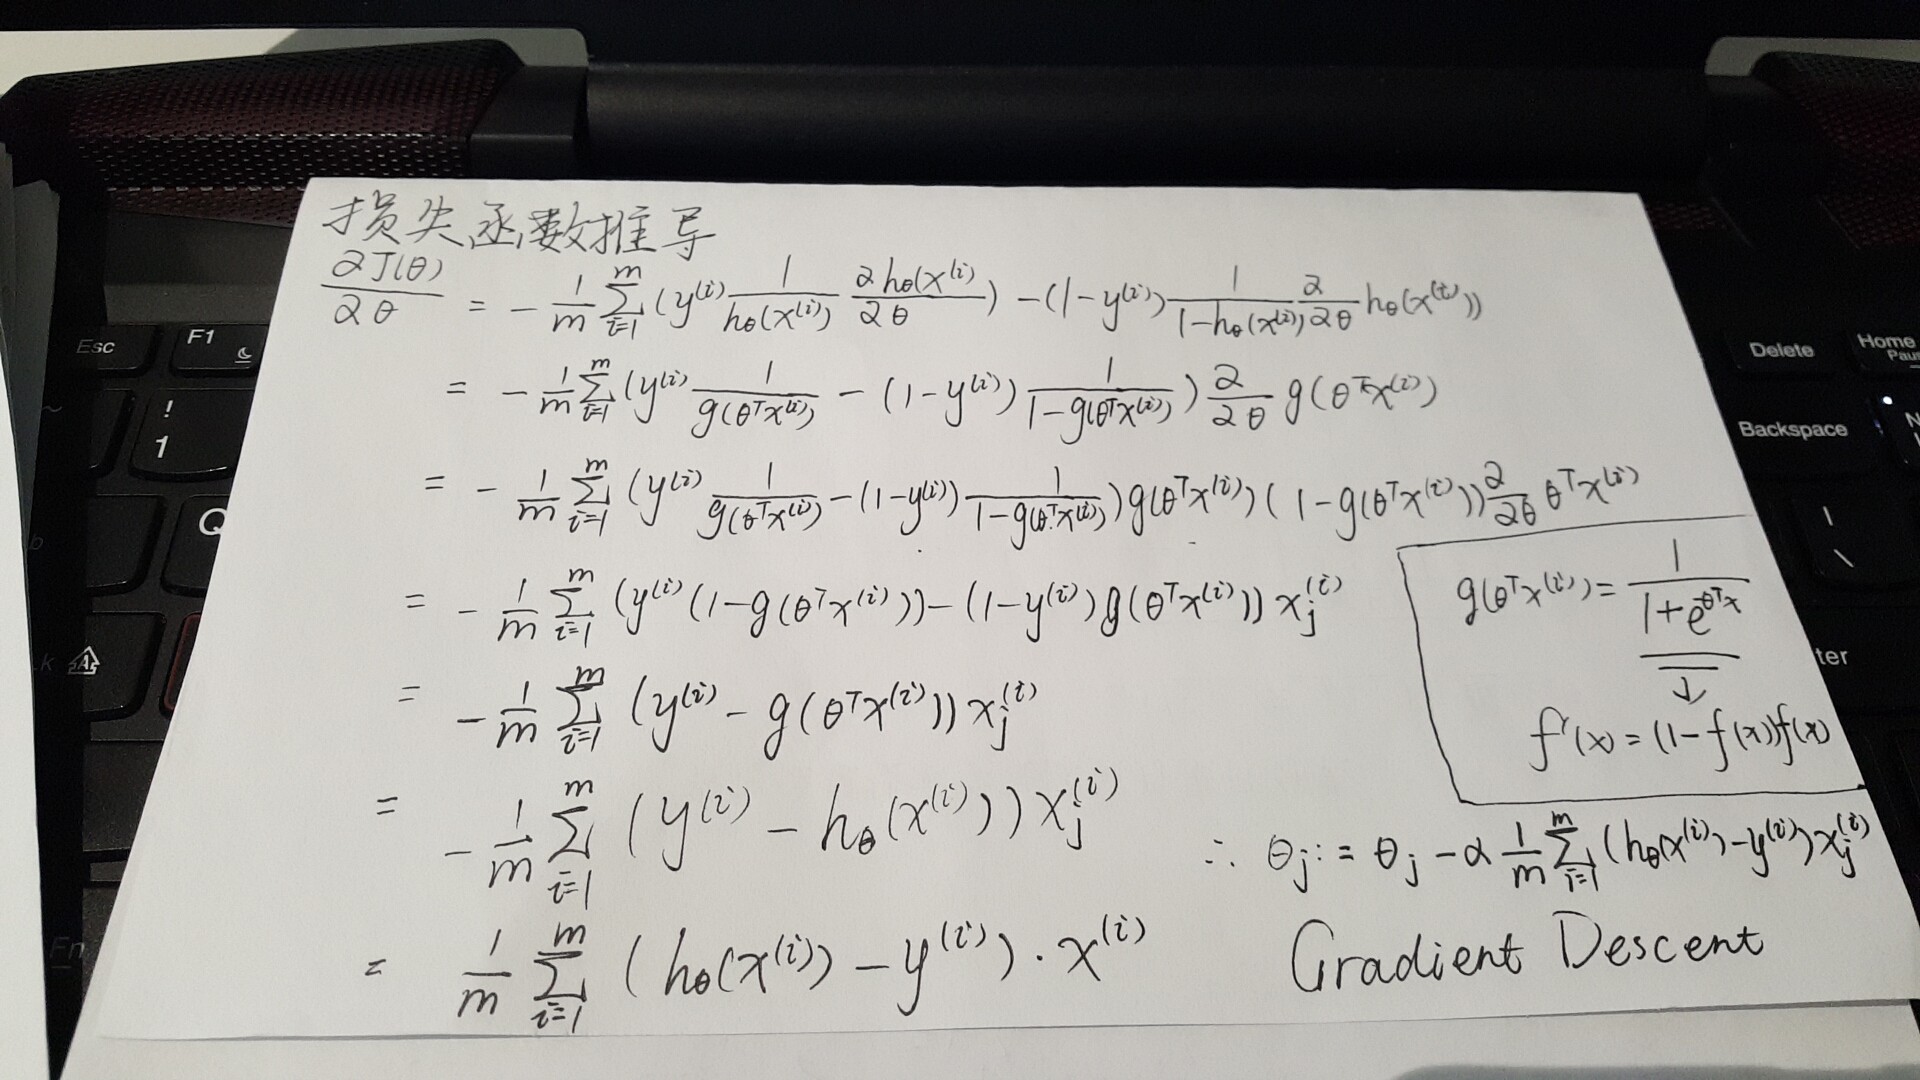 损失函数推导
∂J(θ)/∂θ = - 1/m Σ_{i=1}^{m} (y^{(i)} 1/h_θ(x^{(i)}) ∂h_θ(x^{(i)})/∂θ) - (1-y^{(i)}) 1/(1-h_θ(x^{(i)})) ∂/∂θ h_θ(x^{(i)}))
= - 1/m Σ_{i=1}^{m} (y^{(i)} 1/g(θ^T x^{(i)}) - (1-y^{(i)}) 1/(1-g(θ^T x^{(i)}))) ∂/∂θ g(θ^T x^{(i)})
= - 1/m Σ_{i=1}^{m} (y^{(i)} 1/g(θ^T x^{(i)}) - (1-y^{(i)}) 1/(1-g(θ^T x^{(i)}))) g(θ^T x^{(i)}) (1-g(θ^T x^{(i)})) ∂/∂θ θ^T x^{(i)}
= - 1/m Σ_{i=1}^{m} (y^{(i)} (1-g(θ^T x^{(i)})) - (1-y^{(i)}) g(θ^T x^{(i)})) x_j^{(i)}
= - 1/m Σ_{i=1}^{m} (y^{(i)} - g(θ^T x^{(i)})) x_j^{(i)}
= - 1/m Σ_{i=1}^{m} (y^{(i)} - h_θ(x^{(i)})) x_j^{(i)}
= 1/m Σ_{i=1}^{m} (h_θ(x^{(i)}) - y^{(i)}) · x^{(i)}
g(θ^T x^{(i)}) = 1/(1+e^{θ^T x})
↓
f'(x) = (1-f(x))f(x)
∴ θ_j := θ_j - α 1/m Σ_{i=1}^{m} (h_θ(x^{(i)}) - y^{(i)}) x_j^{(i)}
Gradient Descent
Esc
F1
!
1
Q
A
Fn
Delete
Home
Backspace